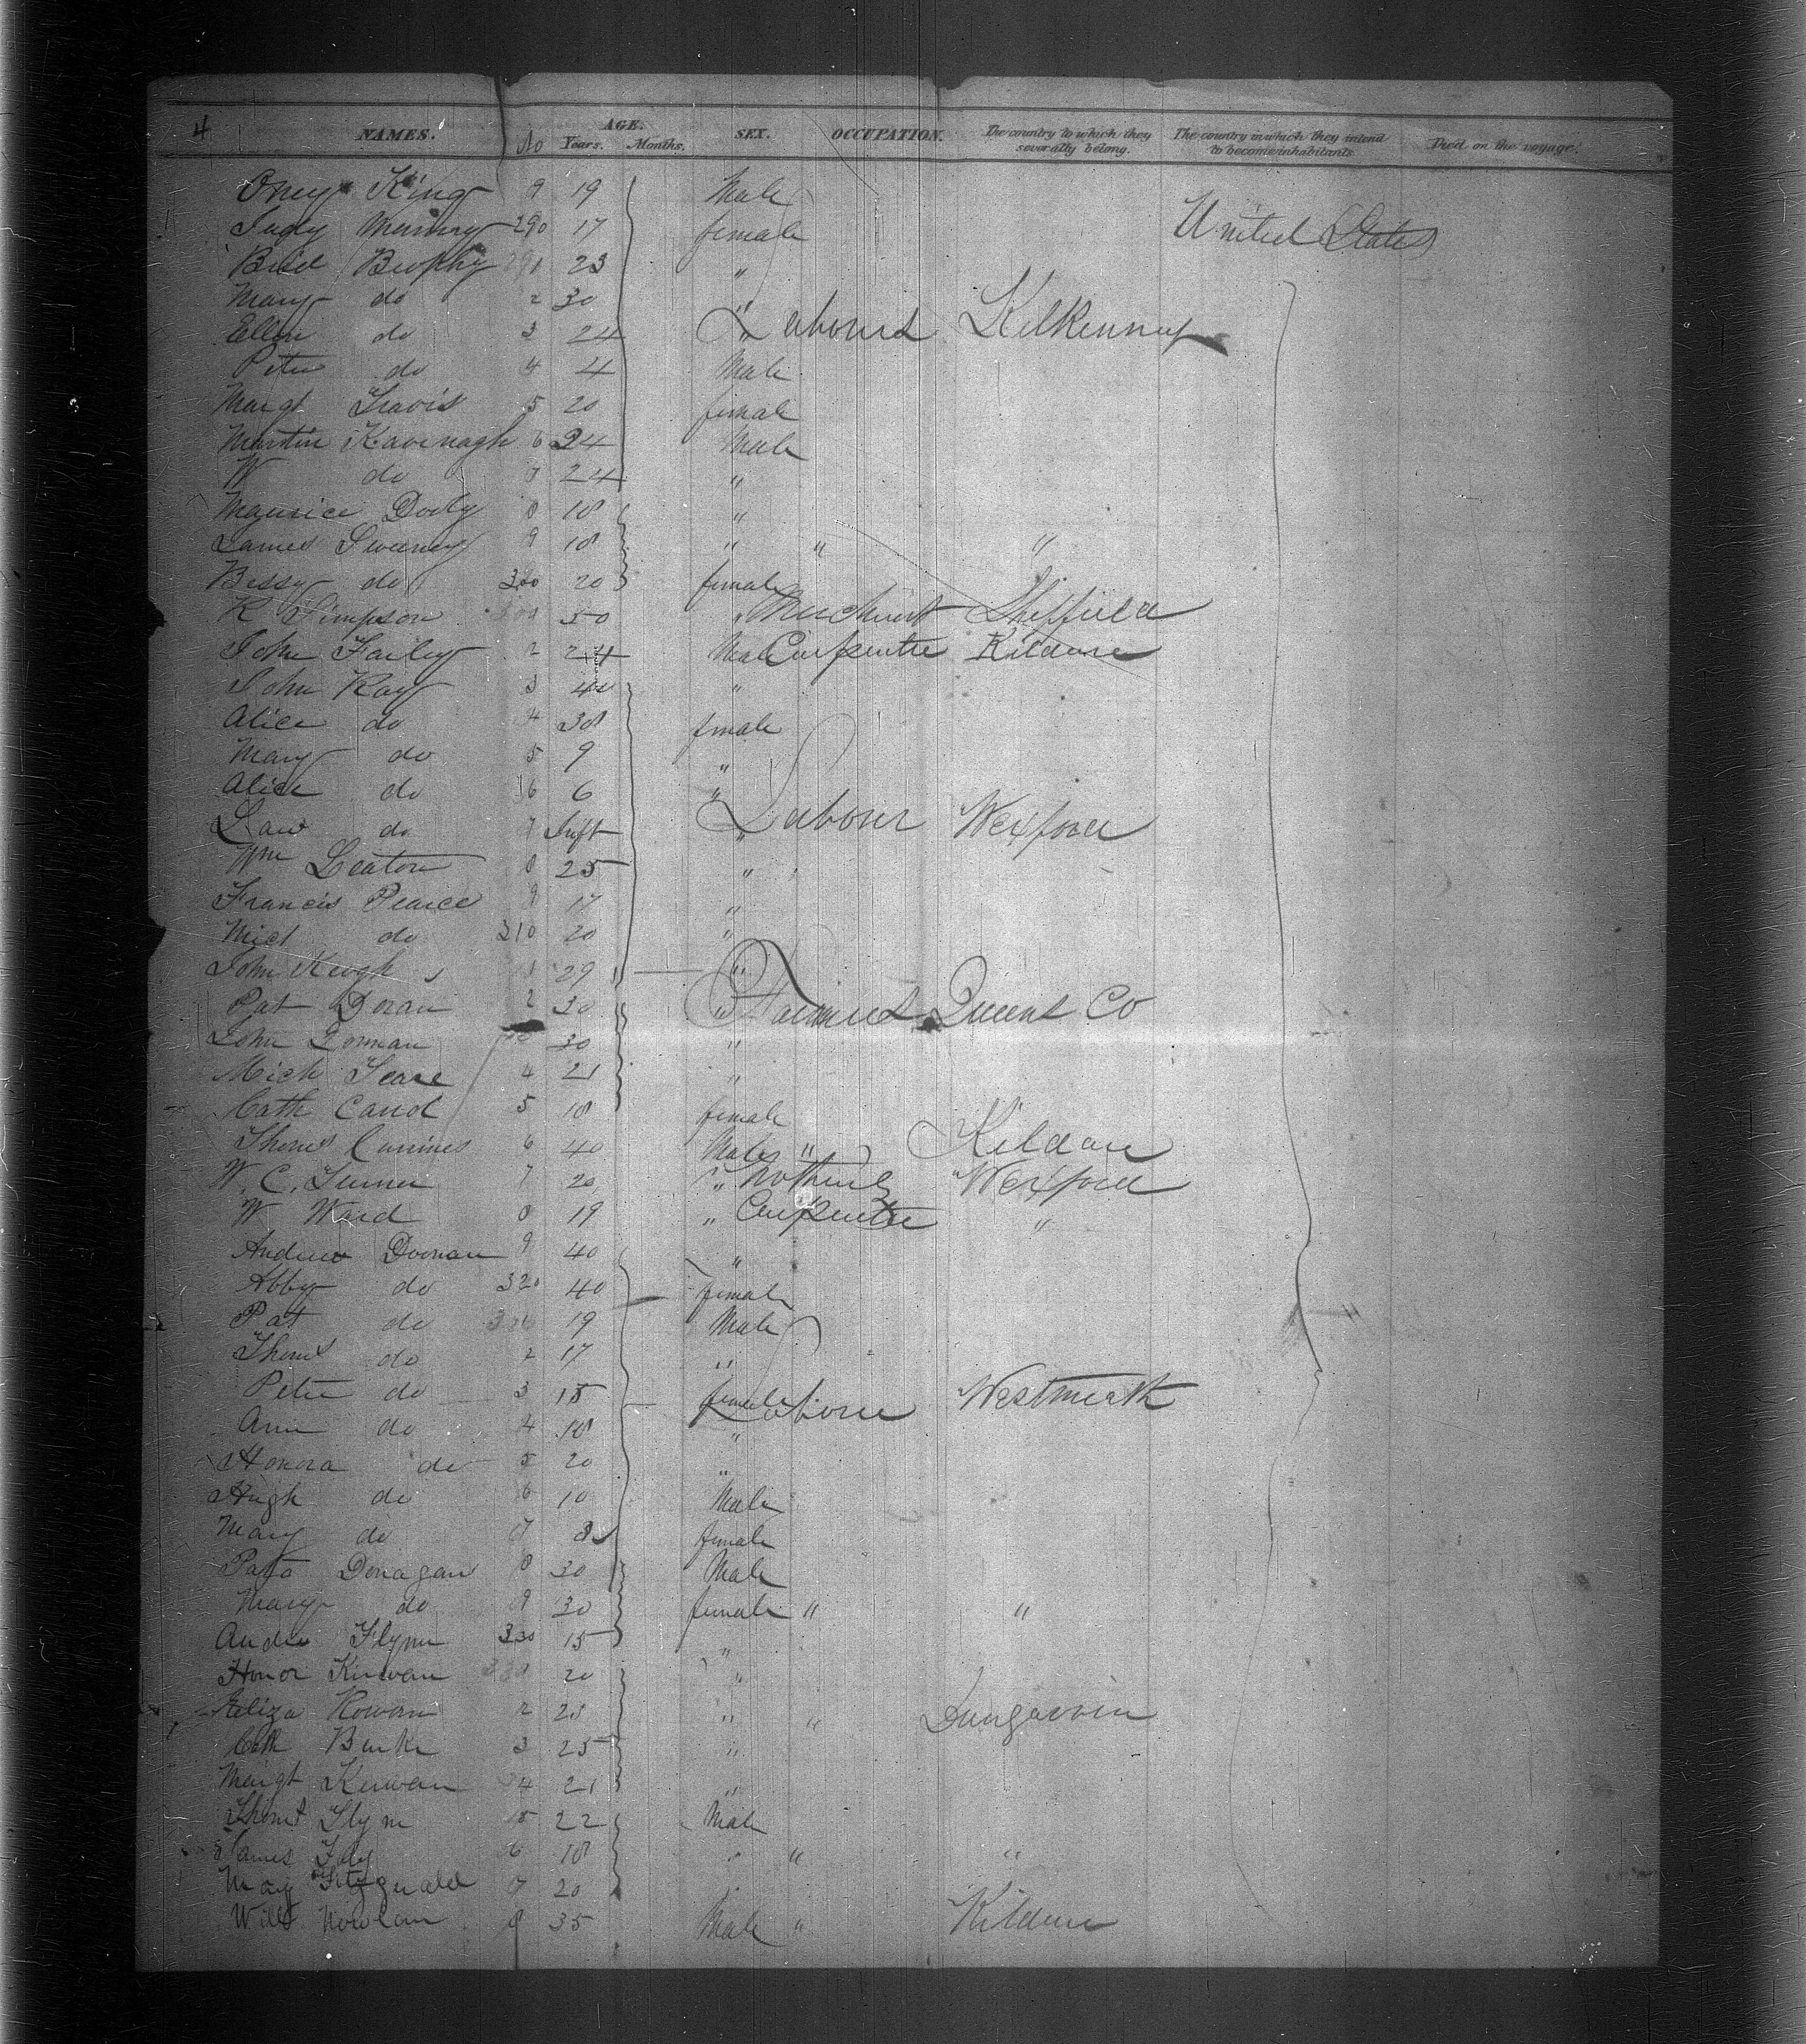 4 NAMES. No AGE. Years. Months. SEX. OCCUPATION. The country to which they severally belong. The country in which they intend to become inhabitants Died on the voyage.
Oney King 9 19 Male
Judy 290 17 female United States
Brophy 23 "
Mary do 2 30 "
Ellen do 3 24 " Labourers Kilkenny
Peter do 4 4 Male
Margt Travis 5 20 female
Martin Kavenagh 6 24 Male
W do 7 24 "
Maurice Dooly 8 18 "
James Sweeney 9 18 " " "
Bessy do 300 20 female
R Simpson 50 " Merchant Sheffield
John Farley 2 24 Male Carpenter Kildare
John Kay 3 40 "
Alice do 4 38 female
Mary do 5 9 "
Alice do 6 6 "
Law do 7 Inft " Labour Wexford
Wm Leaton 8 25 "
Francis Pearce 9 17 "
Micl do 310 20 "
John Keogh 1 29 "
Pat Doran 2 30 " Farmers Queens Co
John 30 "
Mich 4 21 "
Cath 5 18 female
Thoms 6 40 Male " Kildare
W. C. 7 20 " Nothing Wexford
W Ward 8 19 " Carpenter "
Andrew Doonan 9 40 "
Abby do 320 40 female
Pat do 19 Male
Thoms do 2 17 "
Peter do 3 15 female Labour Westmeath
Ann do 4 18 "
Honora do 5 20 "
Hugh do 6 10 Male
Mary do 7 8 female
Donagan 8 30 Male
Mary do 9 30 female " "
Andw Flynn 330 15 "
Honor Kirwan 20 "
Eliza Rowan 2 23 " " Dungarvin
Cath Burke 3 25 "
Margt Kirwan 4 21 "
Thoms Flyn 5 22 Male
James 6 18 " " "
May Fitzgerald 7 20
Willm Nowlan 8 35 Male " Kildare